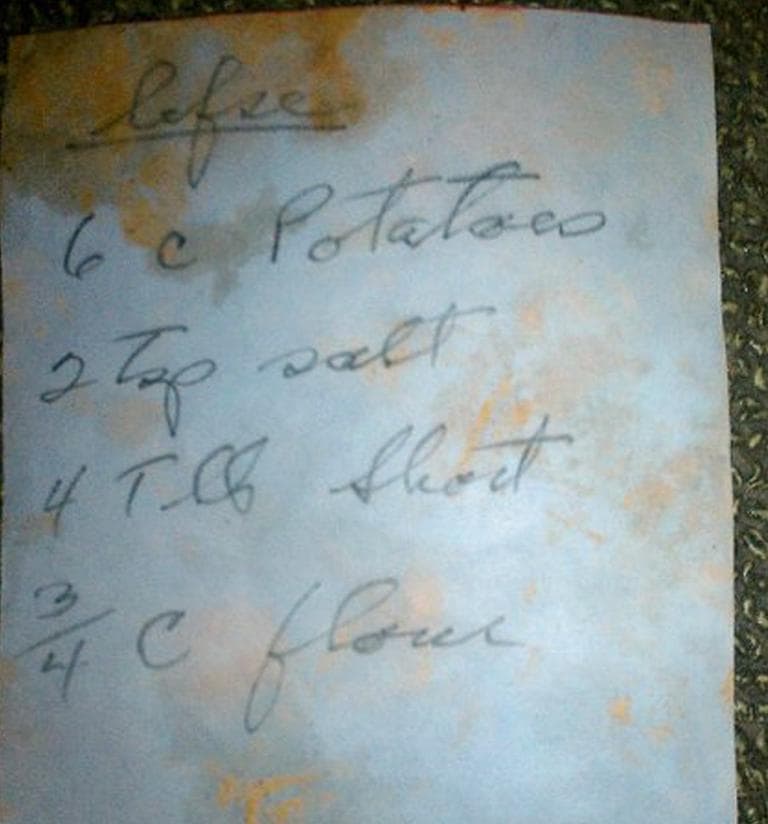 Lefse
6 c Potatoes
2 Tsp salt
4 Tlb Short
3/4 C flour